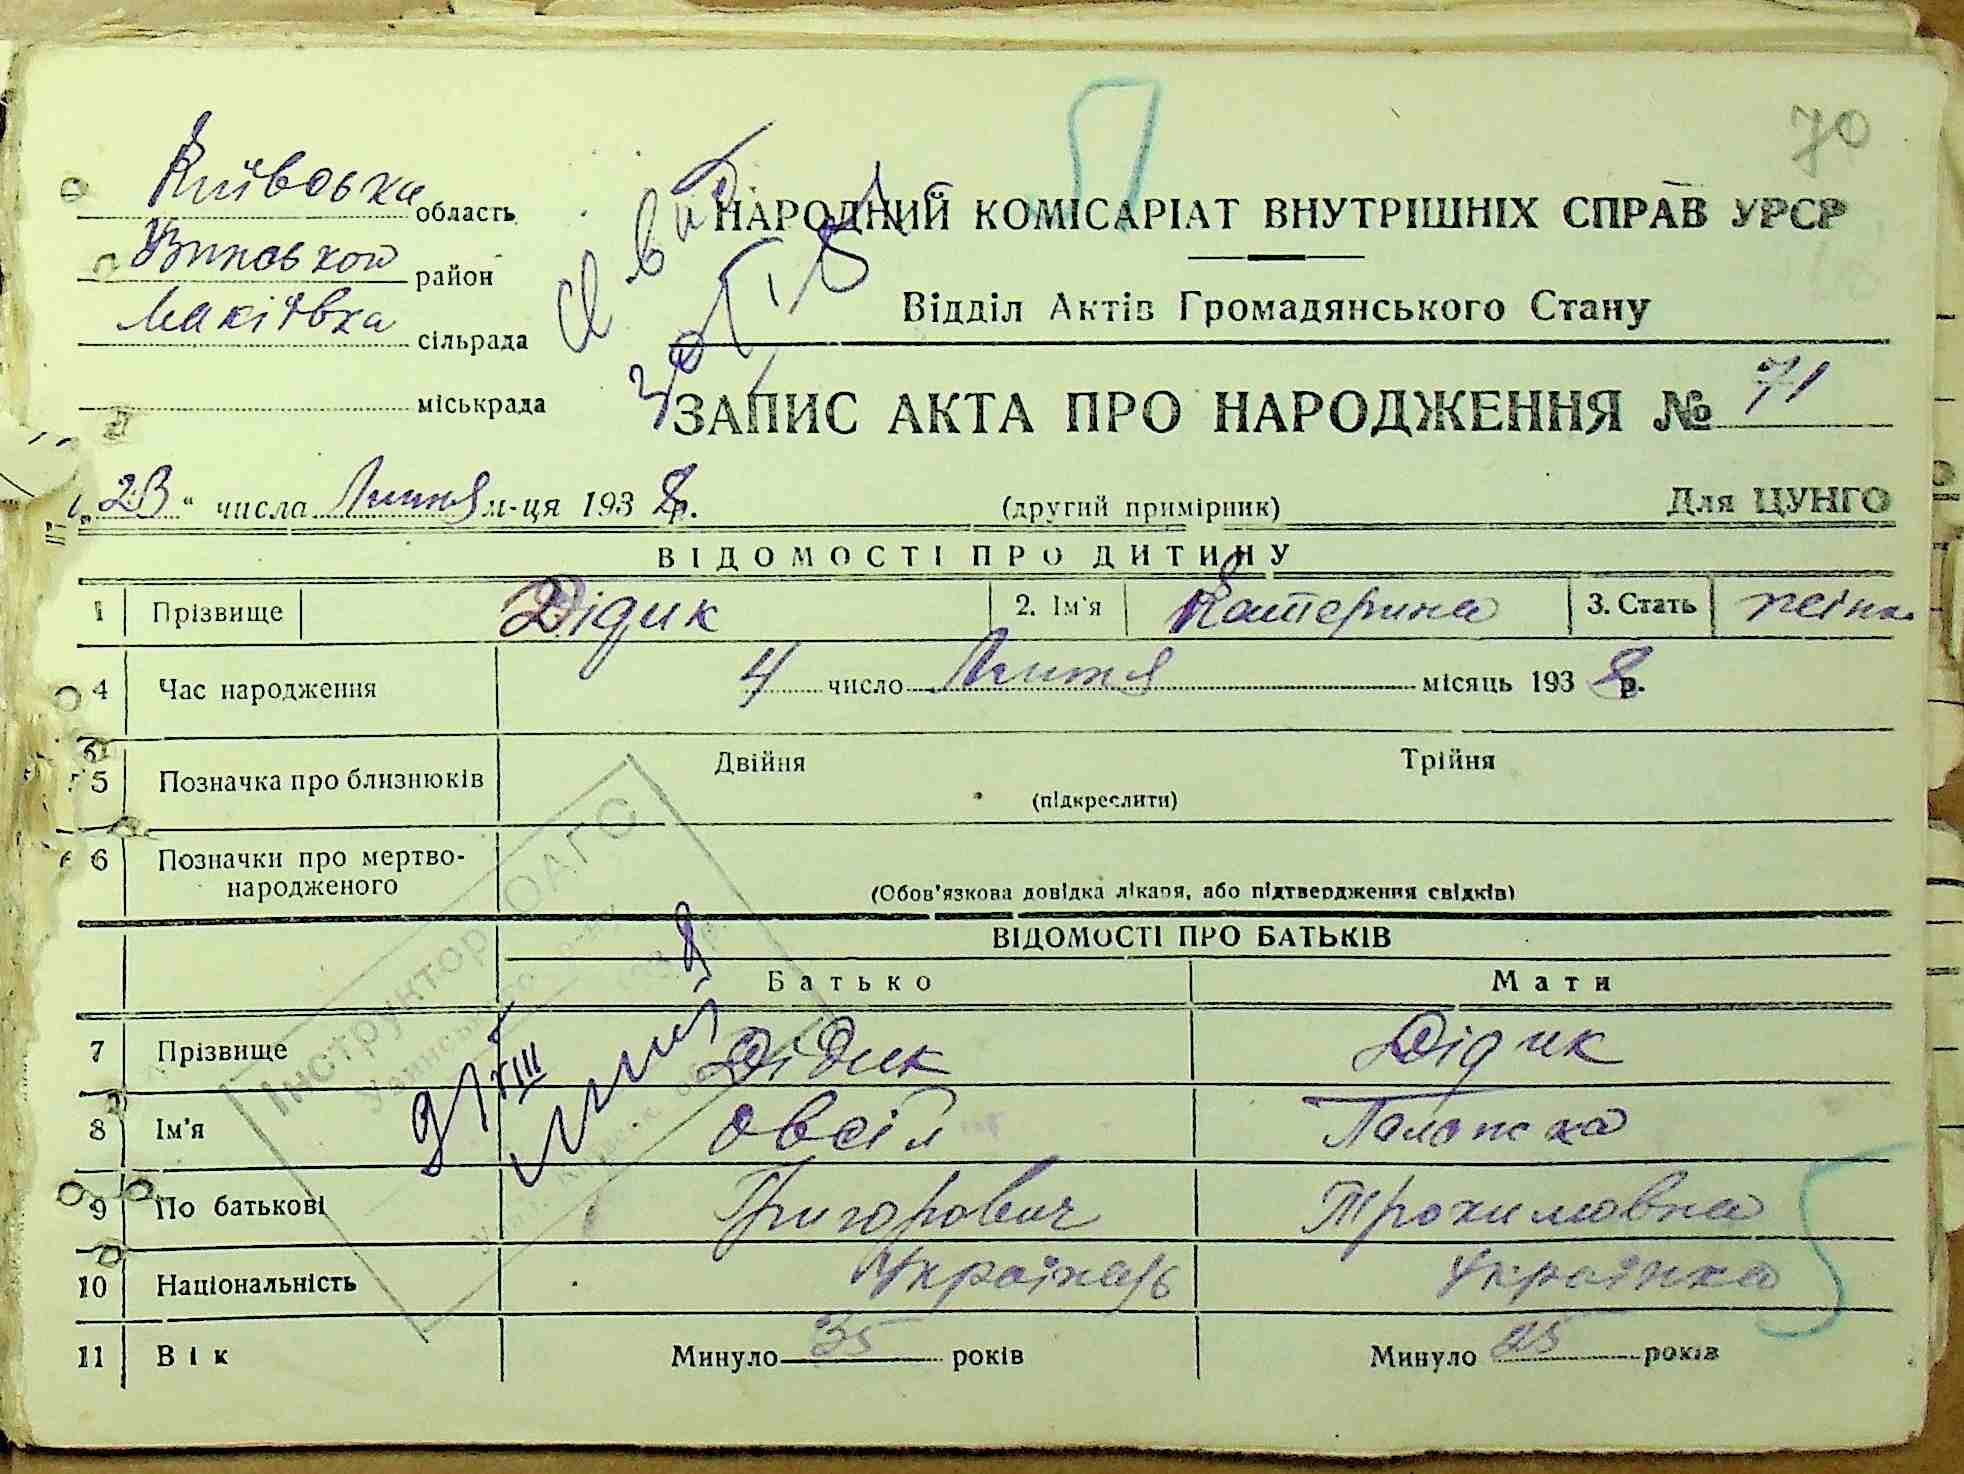 70
Київська область
НАРОДНИЙ КОМІСАРІАТ ВНУТРІШНІХ СПРАВ УРСР
район
Відділ Актів Громадянського Стану
Макіївка сільрада
міськрада
ЗАПИС АКТА ПРО НАРОДЖЕННЯ № 71
„23“ числа Липня м-ця 1938 р. (другий примірник) Для ЦУНГО
ВІДОМОСТІ ПРО ДИТИНУ
1 Прізвище Дідик 2. Ім'я Катерина 3. Стать жіно.
4 Час народження 4 число Липня місяць 1938 р.
5 Позначка про близнюків Двійня Трійня
(підкреслити)
6 Позначки про мертво-
народженого
(Обов'язкова довідка лікаря, або підтвердження свідків)
ВІДОМОСТІ ПРО БАТЬКІВ
Батько Мати
7 Прізвище Дідик Дідик
8 Ім'я Овсій Палажка
9 По батькові Григорович Трохимовна
10 Національність Українець Українка
11 Вік Минуло 35 років Минуло 25 років
Інструктор ОАГС